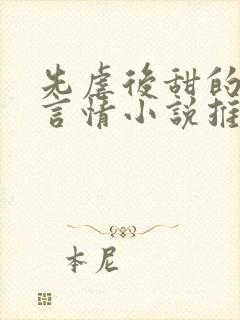 先虐後甜的
言情小說推
本尼